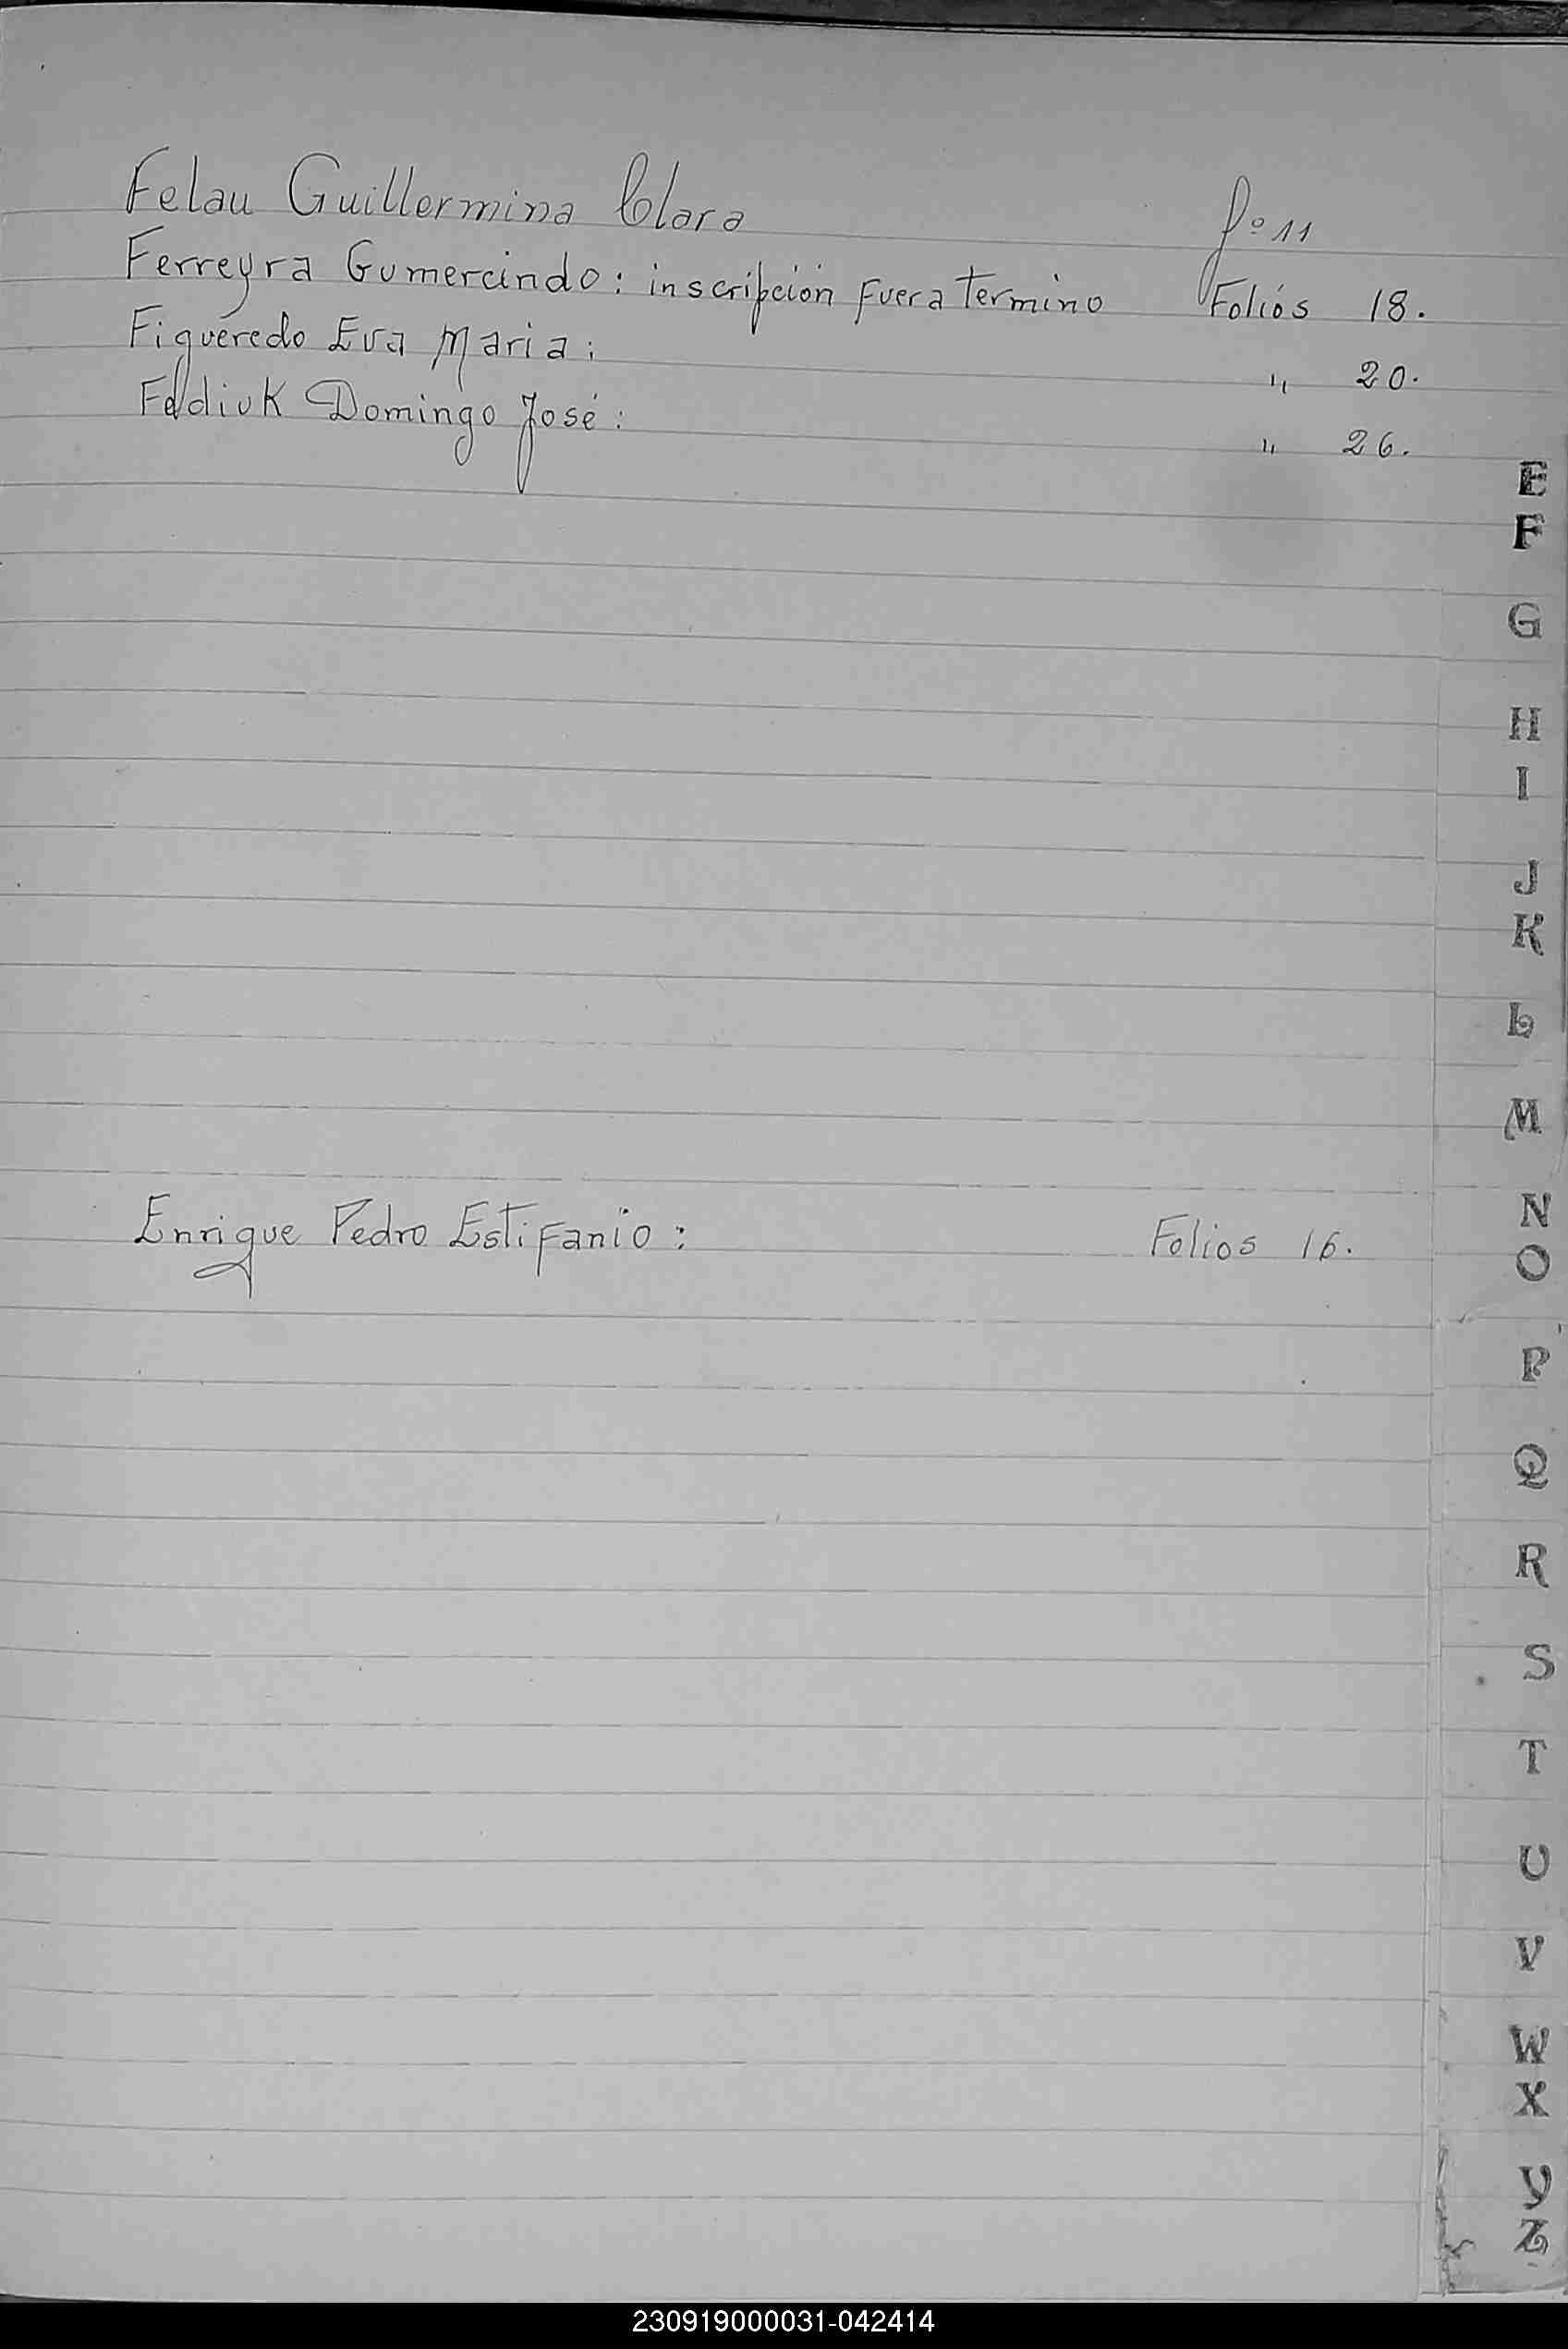 Felau Guillermina Clara fº 11
Ferreyra Gumercindo: inscripción Fuera Termino Folios 18.
Figueredo Eva Maria: " 20.
Fediuk Domingo José: " 26.
E
F
G
H
I
J
K
L
M
Enrique Pedro Estifanio: Folios 16.
N
O
P
Q
R
S
T
U
V
W
X
Y
Z
230919000031-042414